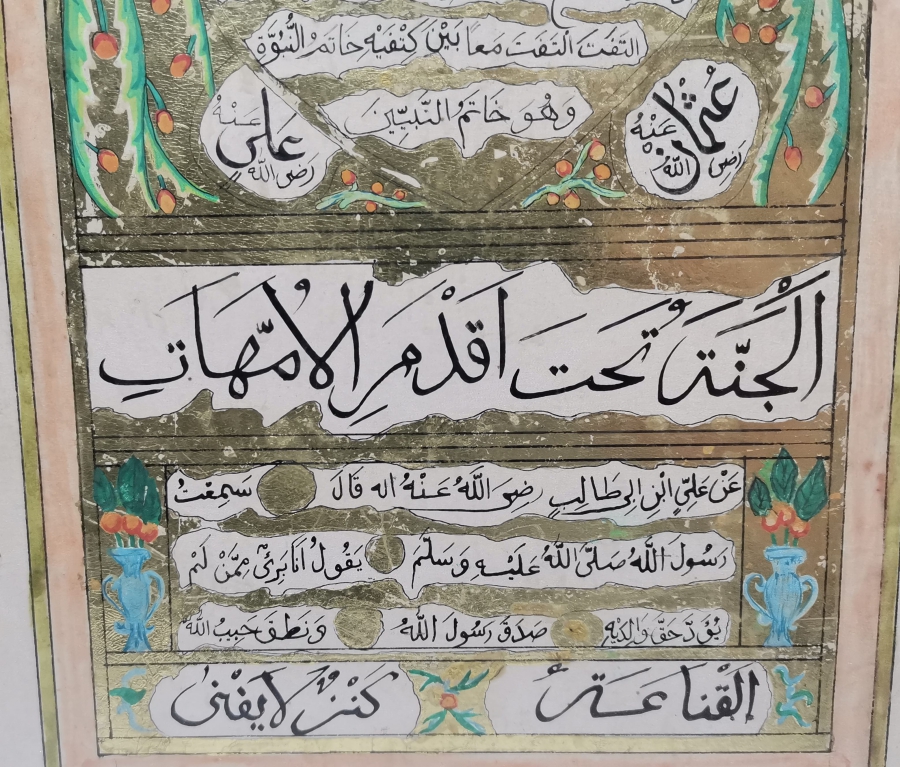 التفت التفت معا بين كتفيه خاتم النبوة
وهو خاتم النبيين
عثمان رضي الله عنه
علي رضي الله عنه
الجَنَّةَ تُحَت اَقْدمِ الاُمَّهَاتِ
عَنْ عَلِيّ ابْن ابى طَالِبٍ رضى اللهُ عَنْهُ انه قَالَ سَمِعْتُ
رَسُولَ اللهِ صَلَّى اللهُ عَلَيْهِ وَسَلَّمَ يَقُولُ اَنَا بَرِئٌ مِمَّنْ لَمْ
يُؤَدِّ حَقَّ وَالِدَيْهِ صَدَقَ رَسُولَ اللهُ وَنَطَقَ حَبِيبُ اللهُ
القناعة كنز لا يفنى